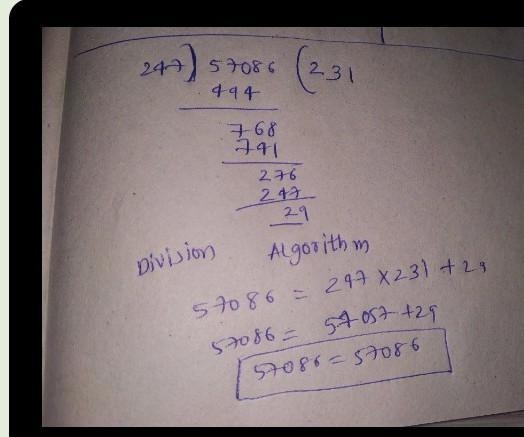 247) 57086 (231
494
768
741
276
247
29
Division Algorithm
57086 = 247 X 231 + 29
57086 = 57057 + 29
57086 = 57086